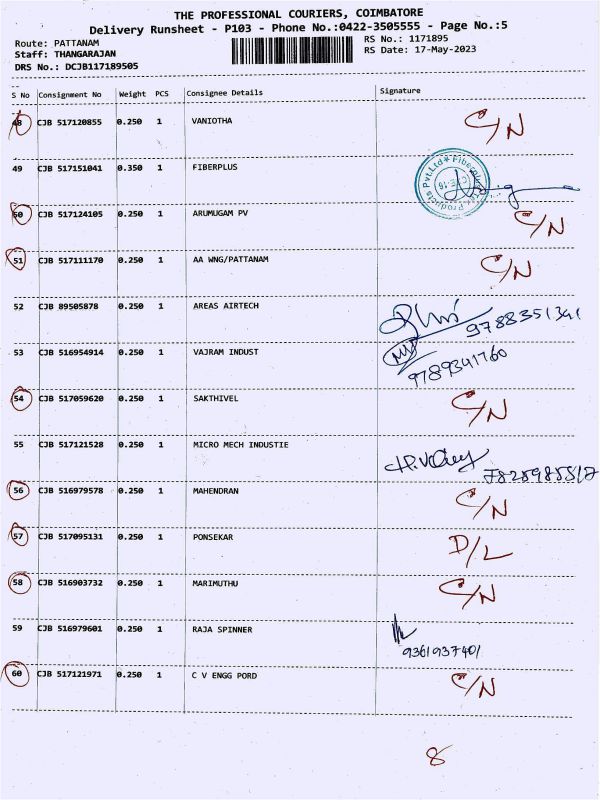 THE PROFESSIONAL COURIERS, COIMBATORE
Delivery Runsheet - P103 - Phone No.:0422-3505555 - Page No.:5
Route: PATTANAM RS No.: 1171895
Staff: THANGARAJAN RS Date: 17-May-2023
DRS No.: DCJB117189505
S No Consignment No Weight PCS Consignee Details Signature
48 CJB 517120855 0.250 1 VANIOTHA C/N
49 CJB 517151041 0.350 1 FIBERPLUS
50 CJB 517124105 0.250 1 ARUMUGAM PV C/N
51 CJB 517111170 0.250 1 AA WNG/PATTANAM C/N
52 CJB 89505878 0.250 1 AREAS AIRTECH 9788351341
53 CJB 516954914 0.250 1 VAJRAM INDUST 9789341760
54 CJB 517059620 0.250 1 SAKTHIVEL C/N
55 CJB 517121528 0.250 1 MICRO MECH INDUSTIE
56 CJB 516979578 0.250 1 MAHENDRAN C/N
57 CJB 517095131 0.250 1 PONSEKAR D/L
58 CJB 516903732 0.250 1 MARIMUTHU C/N
59 CJB 516979601 0.250 1 RAJA SPINNER 9361937401
60 CJB 517121971 0.250 1 C V ENGG PORD C/N
8